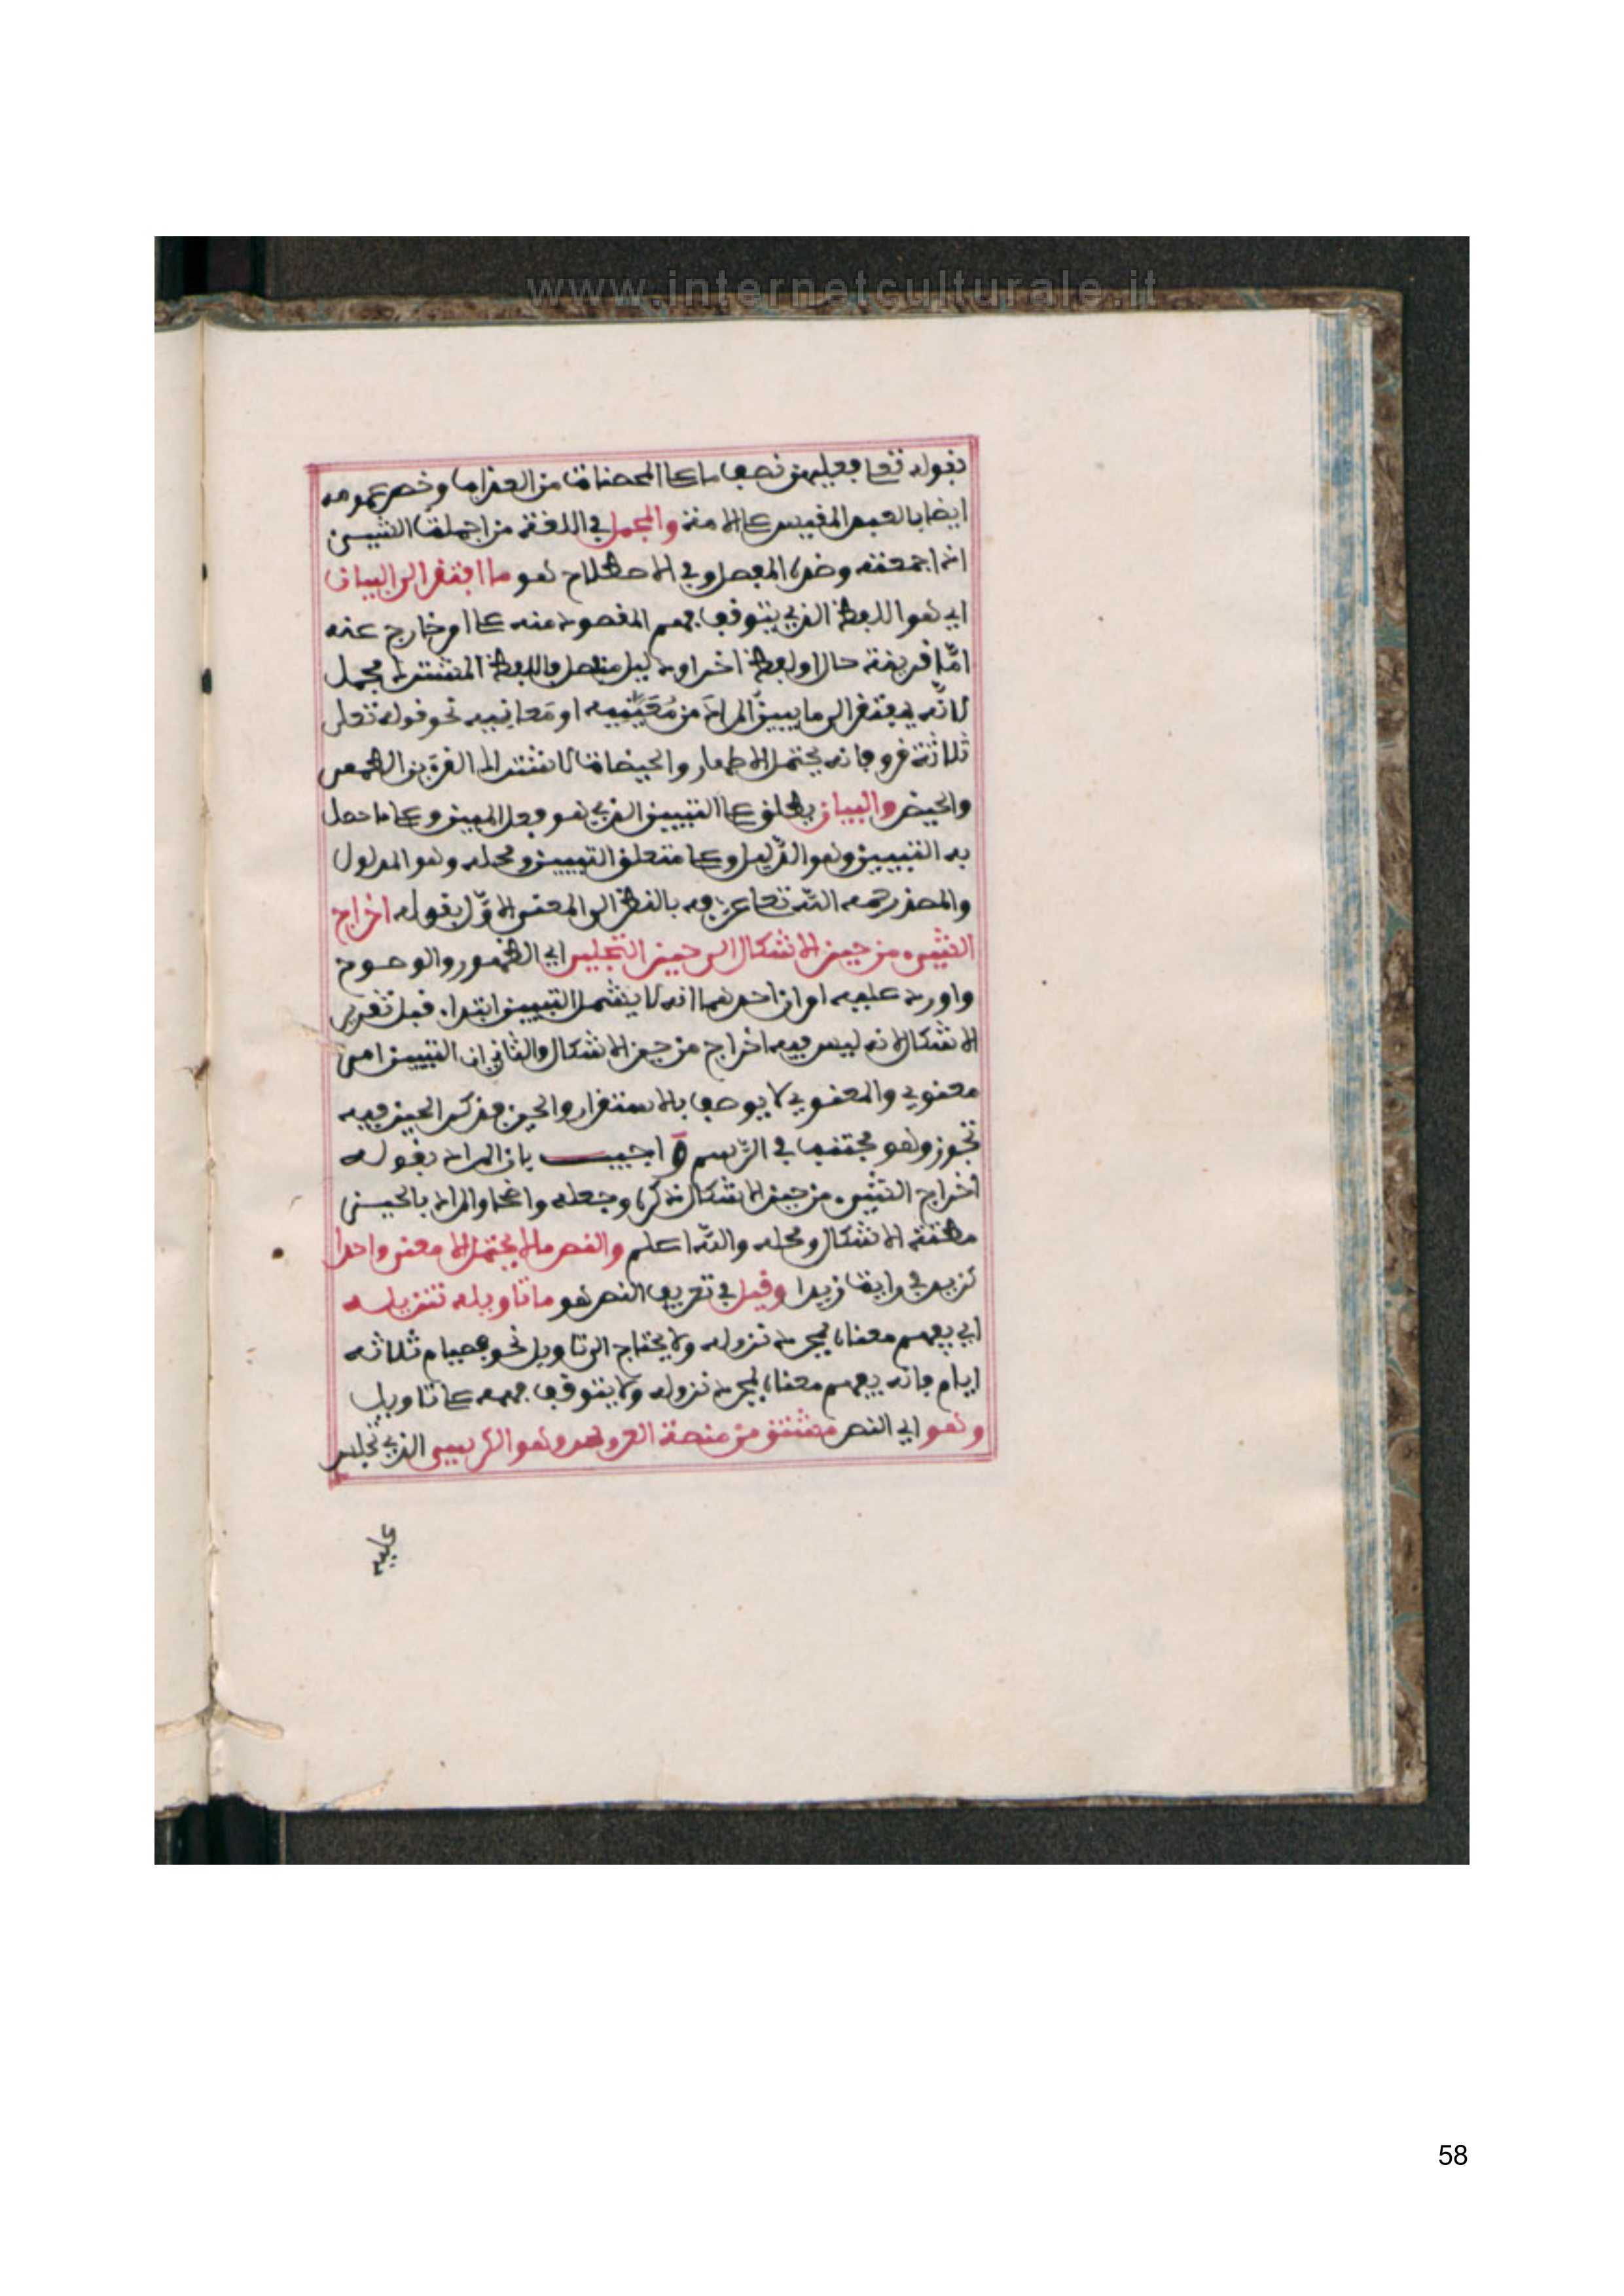 www.internetculturale.it
بقوله تعلى فعليهن نصف ما على المحصنات من العذاب وخص عمومه
ايضا بالعبد المقيس على الامة والمجمل في اللغة من اجملت الشيء
اذا جمعته وضده المفصل وفي الاصطلاح هو ما افتقر الى البيان
اي هو اللفظ الذي يتوقف فهم المقصود منه على امر خارج عنه
امّا قرينة حال او لفظ اخر او دليل منفصل فاللفظ المشترك مجمل
لانّه يفتقر الى ما يبيّن المراد من مَعنَييه او مَعانيه نحو قوله تعلى
ثلاثة قروء فانه يحتمل الاطهار والحيضات لاشتراك القرء بين الطهر
والحيض والبيان يطلق على التبيين الذي هو فعل المبين وعلى ما حصل
به التبيين وهو الدّليل وعلى متعلق التبيين ومحله وهو المدلول
والمصنف رحمه اللّه تعلى عرّفه بالنظر الى المعنى الاوّل بقوله اخراج
الشيء من حيز الاشكال الى حيز التجلي اي الظهور والوضوح
واورد عليه امران احدهما انه لا يشمل التبيين ابتداء قبل تقرير
الاشكال لانه ليس فيه اخراج من حيز الاشكال والثاني ان التبيين امر
معنوي والمعنوي لا يوصف بالاستقرار والحيز فذكر الحيز فيه
تجوز وهو مجتنب في الرّسم وَاجيب بان المراد بقوله
اخراج الشيء من حيز الاشكال ذكره وجعله واضحا والمراد بالحيز
مظنة الاشكال ومحله واللّه اعلم والنص ما لا يحتمل الا معنى واحدا
كزيد في رايت زيدا وقيل في تعريف النص هو ما تاويله تنزيله
اي يفهم معناه بمجرد نزوله ولا يحتاج الى تاويل نحو فصيام ثلاثة
ايام فانه يفهم معناه بمجرد نزوله ولا يتوقف فهمه على تاويل
وهو اي النص مشتق من منصة العروس وهو الكرسي الذي تجلس
عليه
58